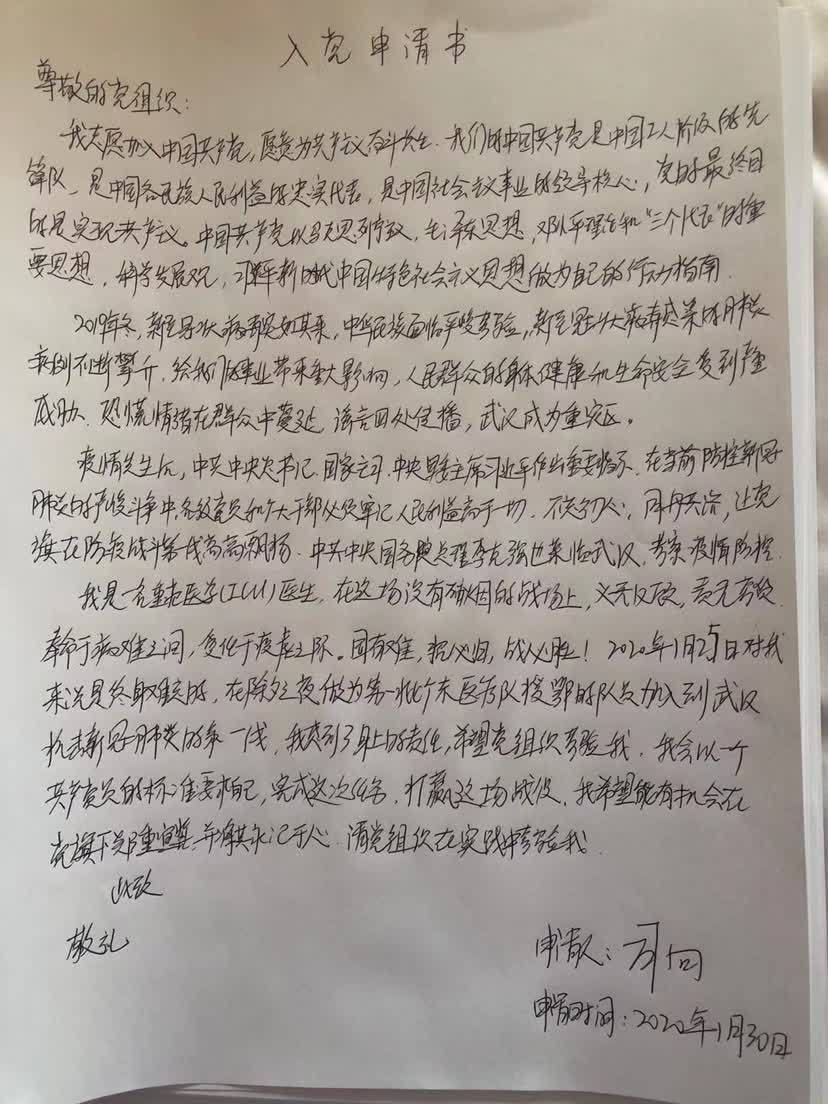 入党申请书
尊敬的党组织：
我志愿加入中国共产党，愿意为共产主义奋斗终生．我们的中国共产党是中国工人阶级的先
锋队，是中国各民族人民利益的忠实代表，是中国社会主义事业的领导核心，党的最终目
的是实现共产主义。中国共产党以马克思列宁主义，毛泽东思想，邓小平理论和“三个代表”的重
要思想，科学发展观，习近平新时代中国特色社会主义思想做为自己的行动指南．
2019年冬，新冠状病毒突如其来，中华民族面临严峻考验，新冠状病毒感染的肺炎
病例不断攀升，给我们的事业带来重大影响，人民群众的身体健康和生命安全受到严重
威胁．恐慌情绪在群众中蔓延，谣言四处传播，武汉成为重灾区。
疫情发生后，中共中央总书记．国家主习．中央军委主席习近平作出重要指示．在当前防控新冠
肺炎的严峻斗争中，各级党员和广大干部必须牢记人民利益高于一切．不忘初心，同舟共济，让党
旗在防疫战斗第线高高飘扬．中共中央国务院总理李克强也来临武汉，考察疫情防控．
我是一名重症医学(ICU)医生．在这场没有硝烟的战场上，义无反顾，责无旁贷
奉命于病难之间，受任于疫虐之际。国有难，招必回，战必胜！2020年1月25日对我
来说是终身难忘的，在除夕之夜做为第一批广东医疗队援鄂的队员加入到武汉
抗击新冠肺炎的第一线，我感到了身上的责任，希望党组织考验我．我会以一个
共产党员的标准要求自己，完成这次任务，打赢这场战役．我希望能有机会在
党旗下郑重宣誓，并牢其永记于心．请党组织在实践中考验我．
此致
敬礼
申请人：
申请时间：2020年1月30日